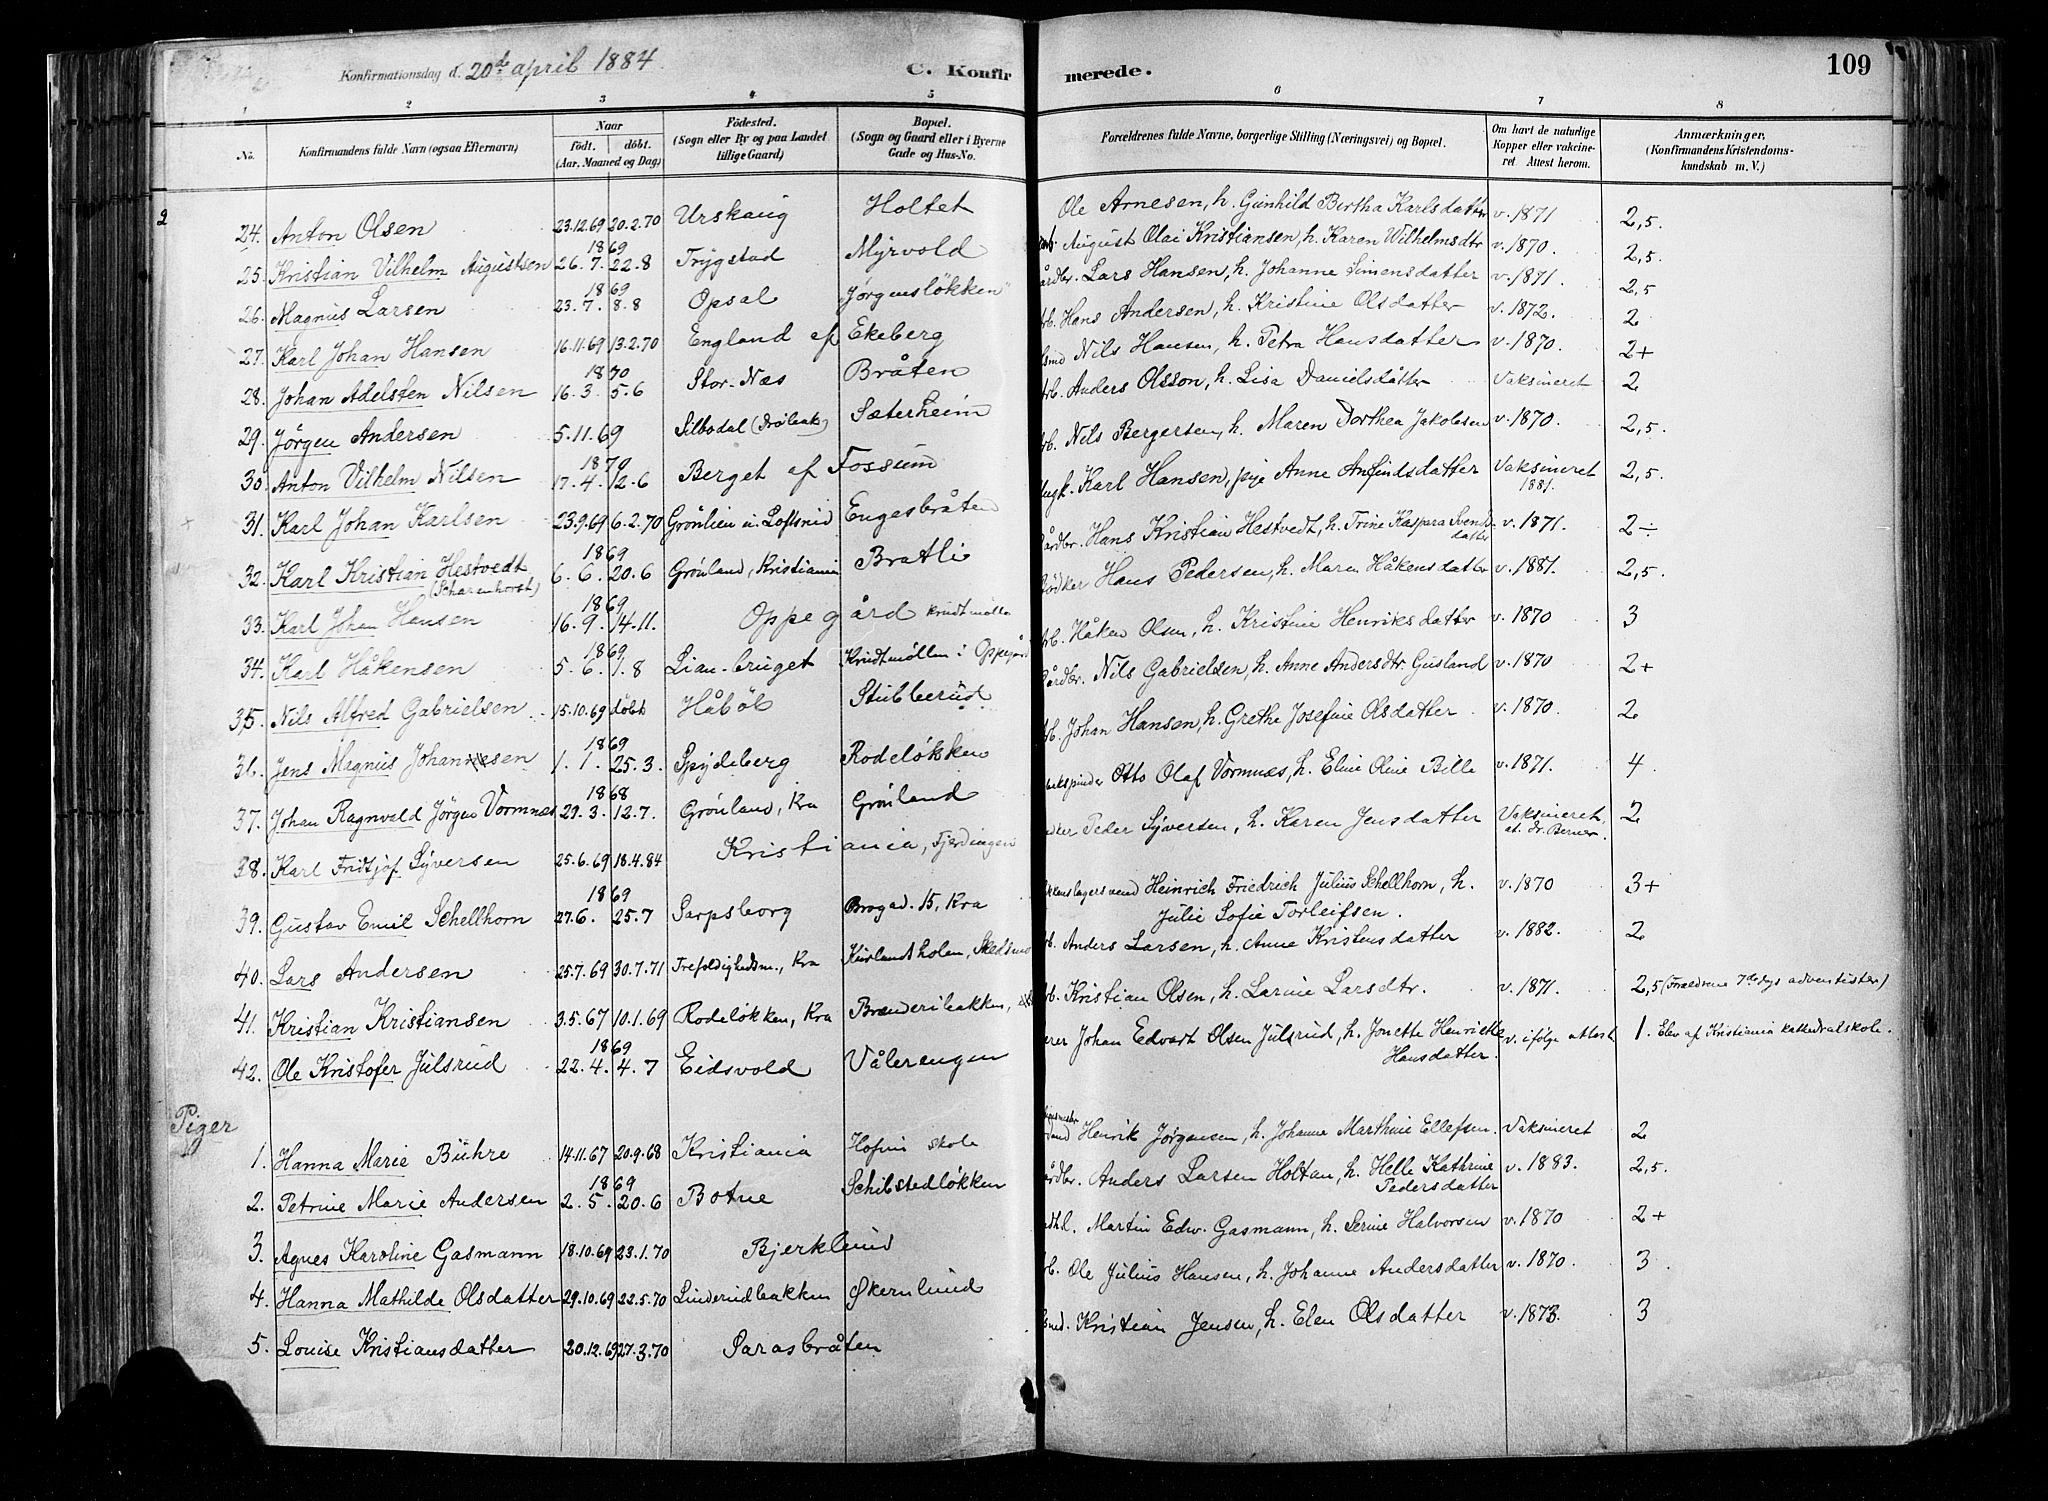 Konfirmationsdag d. 20de april 1884.
C. Konfirmerede.
109
1 2 3 4 5 6 7 8
No.
Konfirmandens fulde Navn (ogsaa Efternavn)
Naar
födt. döbt.
(Aar, Maaned og Dag)
Födested.
(Sogn eller By og paa Landet
tillige Gaard)
Bopæl.
(Sogn og Gaard eller i Byerne
Gade og Hus-No.
Forældrenes fulde Navne, borgerlige Stilling (Næringsvei) og Bopæl.
Om havt de naturlige
Kopper eller vakcine-
ret Attest herom.
Anmærkninger.
(Konfirmandens Kristendoms-
kundskab m. V.)
2
24. Anton Olsen 23.12.69 20.2.70 Urskaug Holtet Ole Arnesen, h. Gunhild Bertha Karlsdatter v. 1871 2,5.
25. Kristian Vilhelm Augustsen 26.7. 1869 22.8 Trygstad Myrvold August Olai Kristiansen, h. Karen Wilhelmsdtr v. 1870. 2,5.
26. Magnus Larsen 23.7. 1869 8.8 Opsal "Jørgensløkken" Lars Hansen, h. Johanne Simensdatter v. 1871. 2,5
27. Karl Johan Hansen 16.11.69 13.2.70 England af Ekeberg Hans Andersen, h. Kristine Olsdatter v. 1872. 2
28. Johan Adelsten Nilsen 16.3 1870 5.6 Stor-Næs Bråten Nils Hansen, h. Petra Hansdatter v. 1870. 2+
29. Jörgen Andersen 5.11.69 Silbodal Sæterheim Anders Olsson, h. Lisa Danielsdatter Vaksineret 2
30. Anton Vilhelm Nilsen 17.4. 1870 12.6 Berget af Fossum Nils Bergersen, h. Maren Dorthea Jakobsen v. 1870. 2,5.
31. Karl Johan Karlsen 23.9.69 6.2.70 Grönlien u. Loftsrud Engesbråten Karl Hansen, pige Anne Anfindsdatter Vaksineret 1881. 2,5.
32. Karl Kristian Hestvedt (Scharenhorst) 6.6. 1869 20.6 Grønland, Kristiania Bratli Hans Kristian Hestvedt, h. Trine Kaspara Svendsdatter v. 1871. 2÷
33. Karl Johan Hansen 16.9. 1869 14.11. Oppegård krudtmølle Hans Pedersen, h. Maren Håkensdatter v. 1881. 2,5.
34. Karl Håkensen 5.6. 1869 1.8 Lian-bruget Krudtmøllen i Oppegård Håken Olsen, h. Kristine Henriksdatter v. 1870 3
35. Nils Alfred Gabrielsen 15.10.69 döbt Håböl Stubberud Nils Gabrielsen, h. Anne Andersdtr Gusland v. 1870 2+
36. Jens Magnus Johansen 1.1. 1869 25.3. Spydeberg Rodeløkken Johan Hansen, h. Grethe Josefine Olsdatter v. 1870. 2
37. Johan Ragnvald Jörgen Vormnæs 29.3. 1868 12.7. Grönland, Kra Grönland Otto Olaf Vormnæs, h. Eline Oline Bille v. 1871. 4.
38. Karl Fridtjof Syversen 25.6.69 18.4.84 Kristiania, Fjerdingen Peder Syversen, h. Karen Jensdatter Vaksineret, at. Dr. Berner 2
39. Gustav Emil Schellhorn 27.6. 1869 25.7 Sarpsborg Brogad. 15, Kra Heinrich Friedrich Julius Schellhorn, h.
Julie Sofie Torleifsen. v. 1870 3+
40. Lars Andersen 25.7.69 30.7.71 Trefoldighedsm., Kra Kurlandsholen, Skedsmo Anders Larsen, h. Anne Kristensdatter v. 1882. 2
41. Kristian Kristiansen 3.5.67 10.1.69 Rodeløkken, Kra Brænderibakken, Kristian Olsen, h. Larine Larsdtr. v. 1871. 2,5 (Forældrene 7de dags adventister)
42. Ole Kristofer Julsrud 22.4. 1869 4.7 Eidsvold Vålerengen Johan Edvart Olsen Julsrud, h. Jonette Henriette
Hansdatter. v. ifölge attest 1. Elev af Kristiania kathedralskole.
Piger
1. Hanna Marie Bühre 14.11.67 20.9.68 Kristiania Hofvin skole Henrik Jørgensen, h. Johanne Marthine Ellefsen. Vaksineret 2
2. Petrine Marie Andersen 2.5. 1869 20.6 Botne Schibstedløkken Anders Larsen Holtan, h. Helle Kathrine
Pedersdatter v. 1883. 2,5.
3. Agnes Karoline Gasmann 18.10.69 23.1.70 Bjerklund Martin Edw. Gasmann, h. Serine Halvorsen v. 1870 2+
4. Hanna Mathilde Olsdatter 29.10.69 22.5.70 Linderudbakken Økernlund Ole Julius Hansen, h. Johanne Andersdatter v. 1870. 3.
5. Louise Kristiansdatter 20.12.69 27.3.70 Sarasbråten Kristian Jensen, h. Elen Olsdatter v. 1873. 3